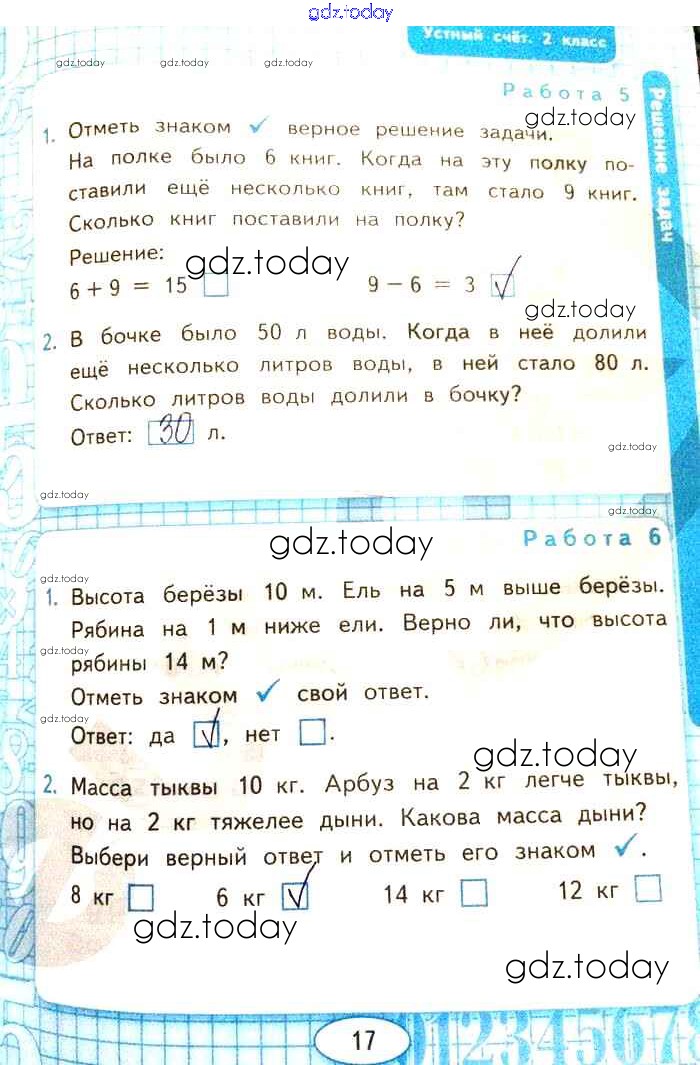 gdz.today
Устный счёт. 2 класс
gdz.today gdz.today gdz.today gdz.today
Работа 5
gdz.today
Решение задач
1. Отметь знаком ✓ верное решение задачи.
На полке было 6 книг. Когда на эту полку по-
ставили ещё несколько книг, там стало 9 книг.
Сколько книг поставили на полку?
Решение:
gdz.today
6 + 9 = 15 ☐ 9 – 6 = 3 ☑
gdz.today
2. В бочке было 50 л воды. Когда в неё долили
ещё несколько литров воды, в ней стало 80 л.
Сколько литров воды долили в бочку?
Ответ: 30 л.
gdz.today
gdz.today
gdz.today
gdz.today
Работа 6
gdz.today
1. Высота берёзы 10 м. Ель на 5 м выше берёзы.
Рябина на 1 м ниже ели. Верно ли, что высота
gdz.today
рябины 14 м?
Отметь знаком ✓ свой ответ.
gdz.today
Ответ: да ☑, нет ☐.
gdz.today
2. Масса тыквы 10 кг. Арбуз на 2 кг легче тыквы,
но на 2 кг тяжелее дыни. Какова масса дыни?
Выбери верный ответ и отметь его знаком ✓.
8 кг ☐ 6 кг ☑ 14 кг ☐ 12 кг ☐
gdz.today
gdz.today gdz.today gdz.today
gdz.today
17
012345678